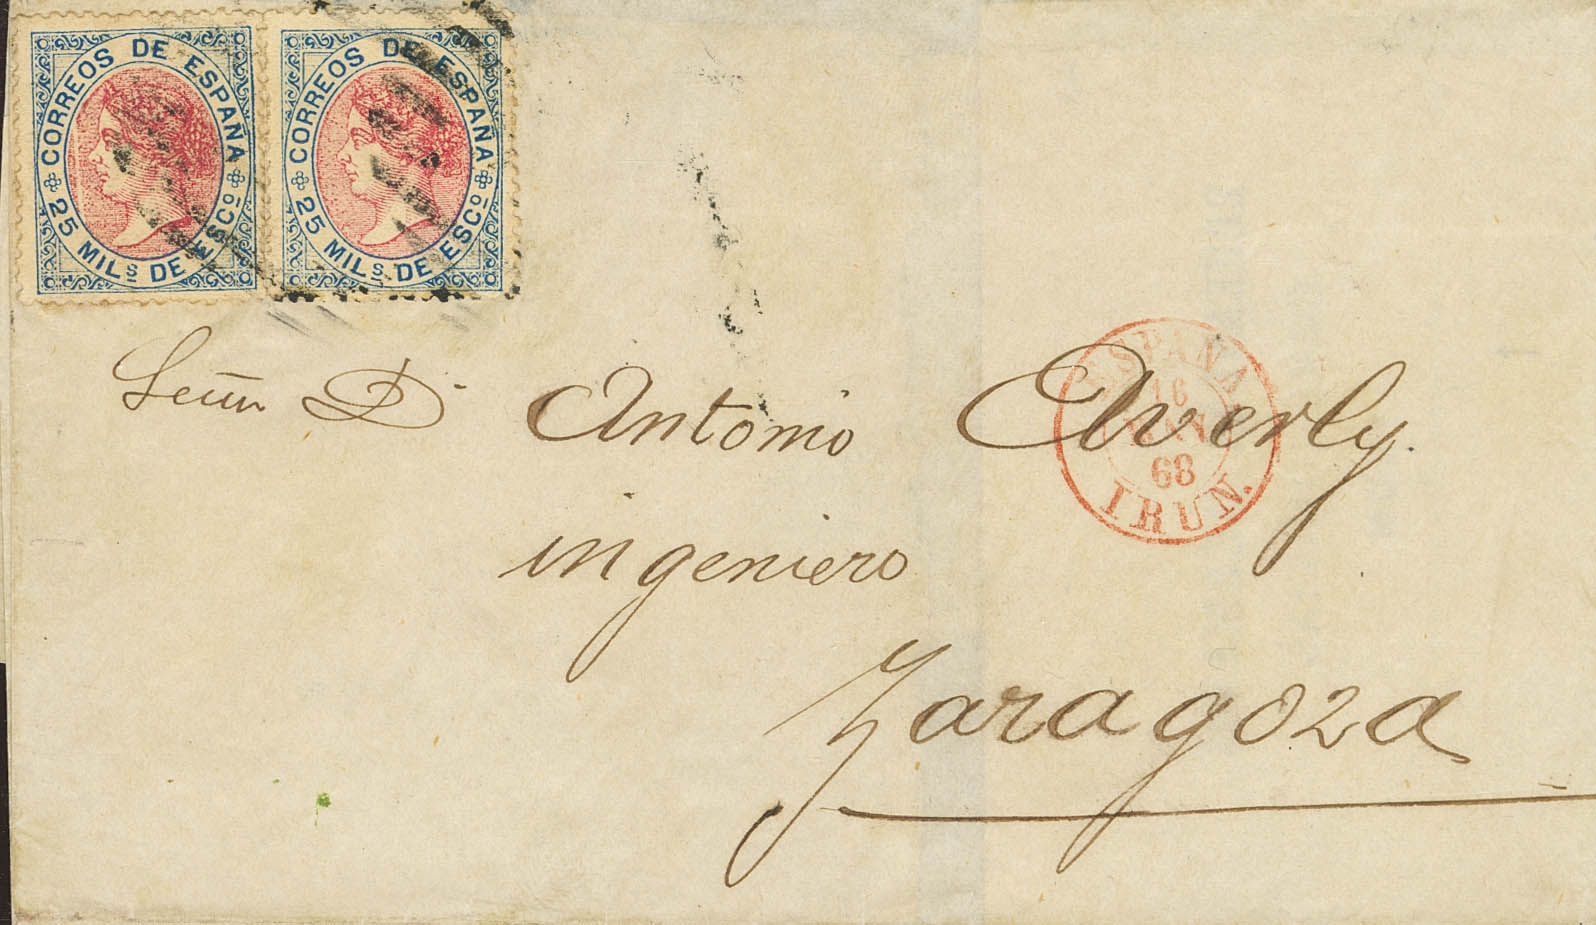 CORREOS DE ESPAÑA
25 MILS DE ESCO
CORREOS DE ESPAÑA
25 MILS DE ESCO
Señor D. Antonio Averly.
ingeniero
Zaragoza
ESPAÑA
16
68
IRUN.